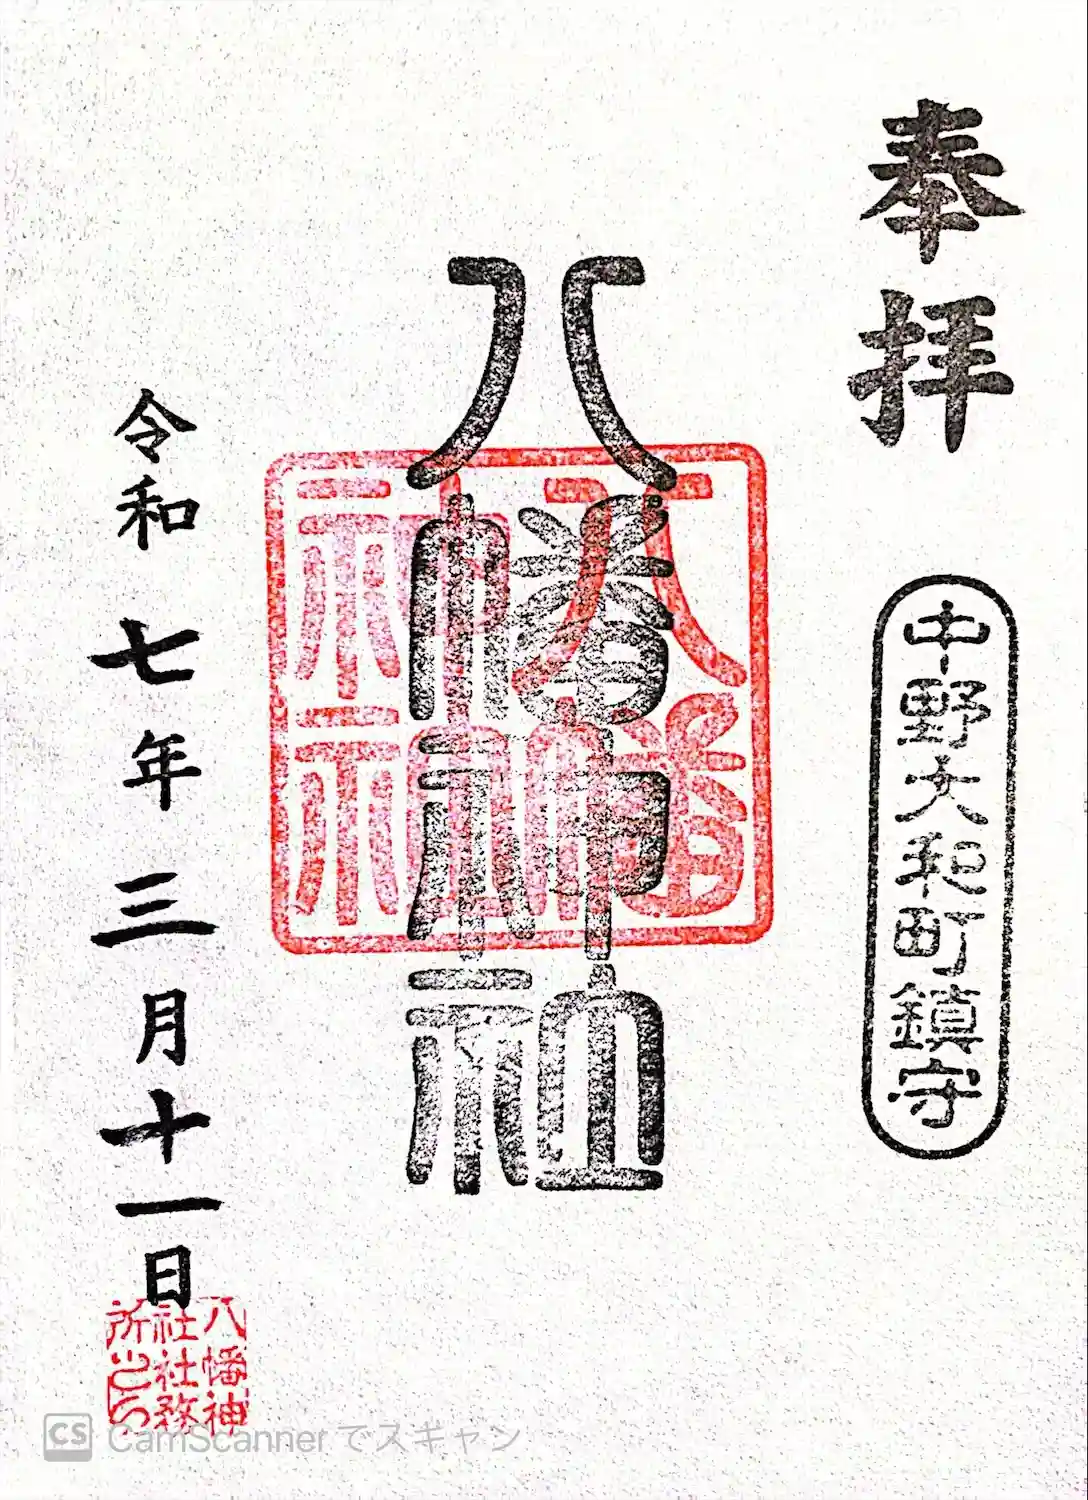 奉拝
中野大和町鎮守
八幡神社
八幡神社
令和七年三月十一日
八幡神
社社務
所之印
CS CamScanner でスキャン